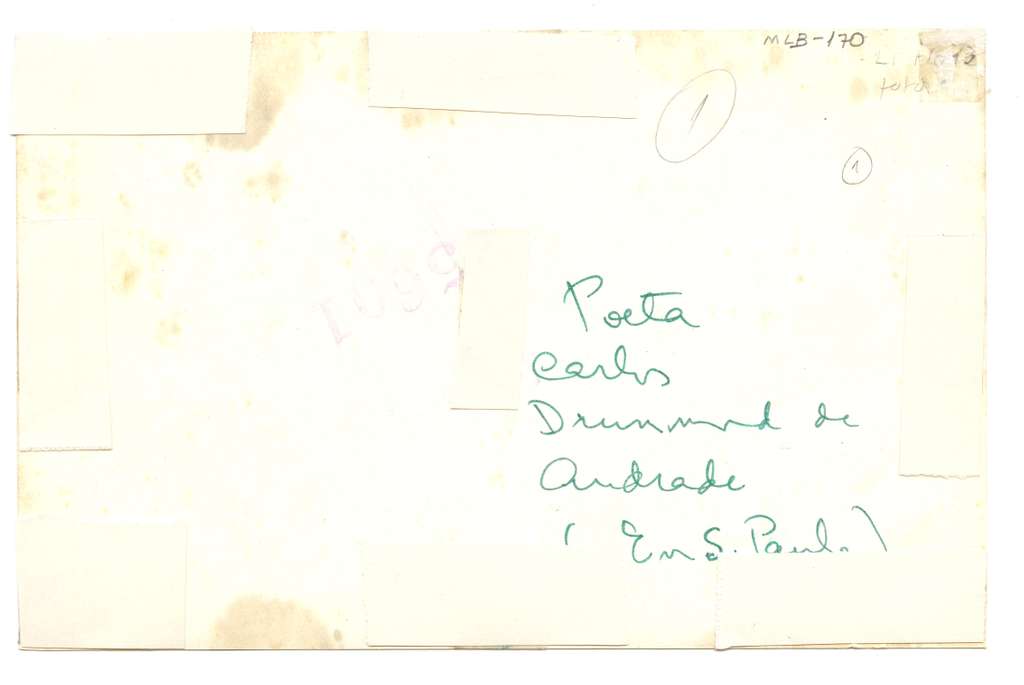 MLB-170
1
1
Poeta
Carlos
Drummond de
Andrade
(Em S. Paulo)